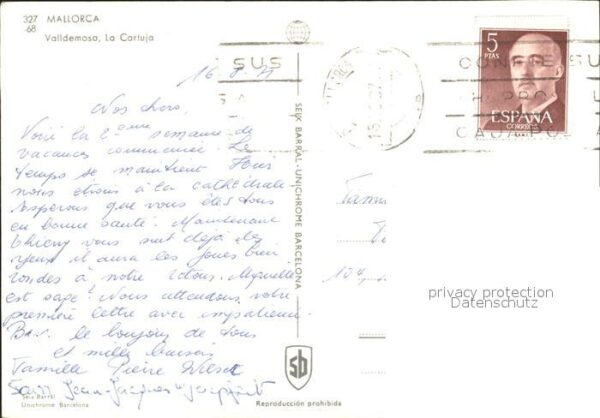 327
68
MALLORCA
Valldemosa, La Cartuja
16.8.71
Nos chers,
Voici la 2ème semaine de
vacances commencée. Le
temps se maintient. Hier
nous étions à la cathédrale
Espérons que vous êtes tous
en bonne santé. Maintenant
Thierry vous suit déjà des
yeux il aura les joues bien
rondes à notre retour. Murielle
est sage? Nous attendons votre
première lettre avec impatience.
le bonjour de tous
et mille baisers
Famille Pierre
Jean-Jacques
Seix Barral
Unichrome Barcelona
SEIX BARRAL - UNICHROME BARCELONA
sb
Reproducción prohibida
SUS
5
PTAS
ESPAÑA
CORREOS
SU
104
privacy protection
Datenschutz